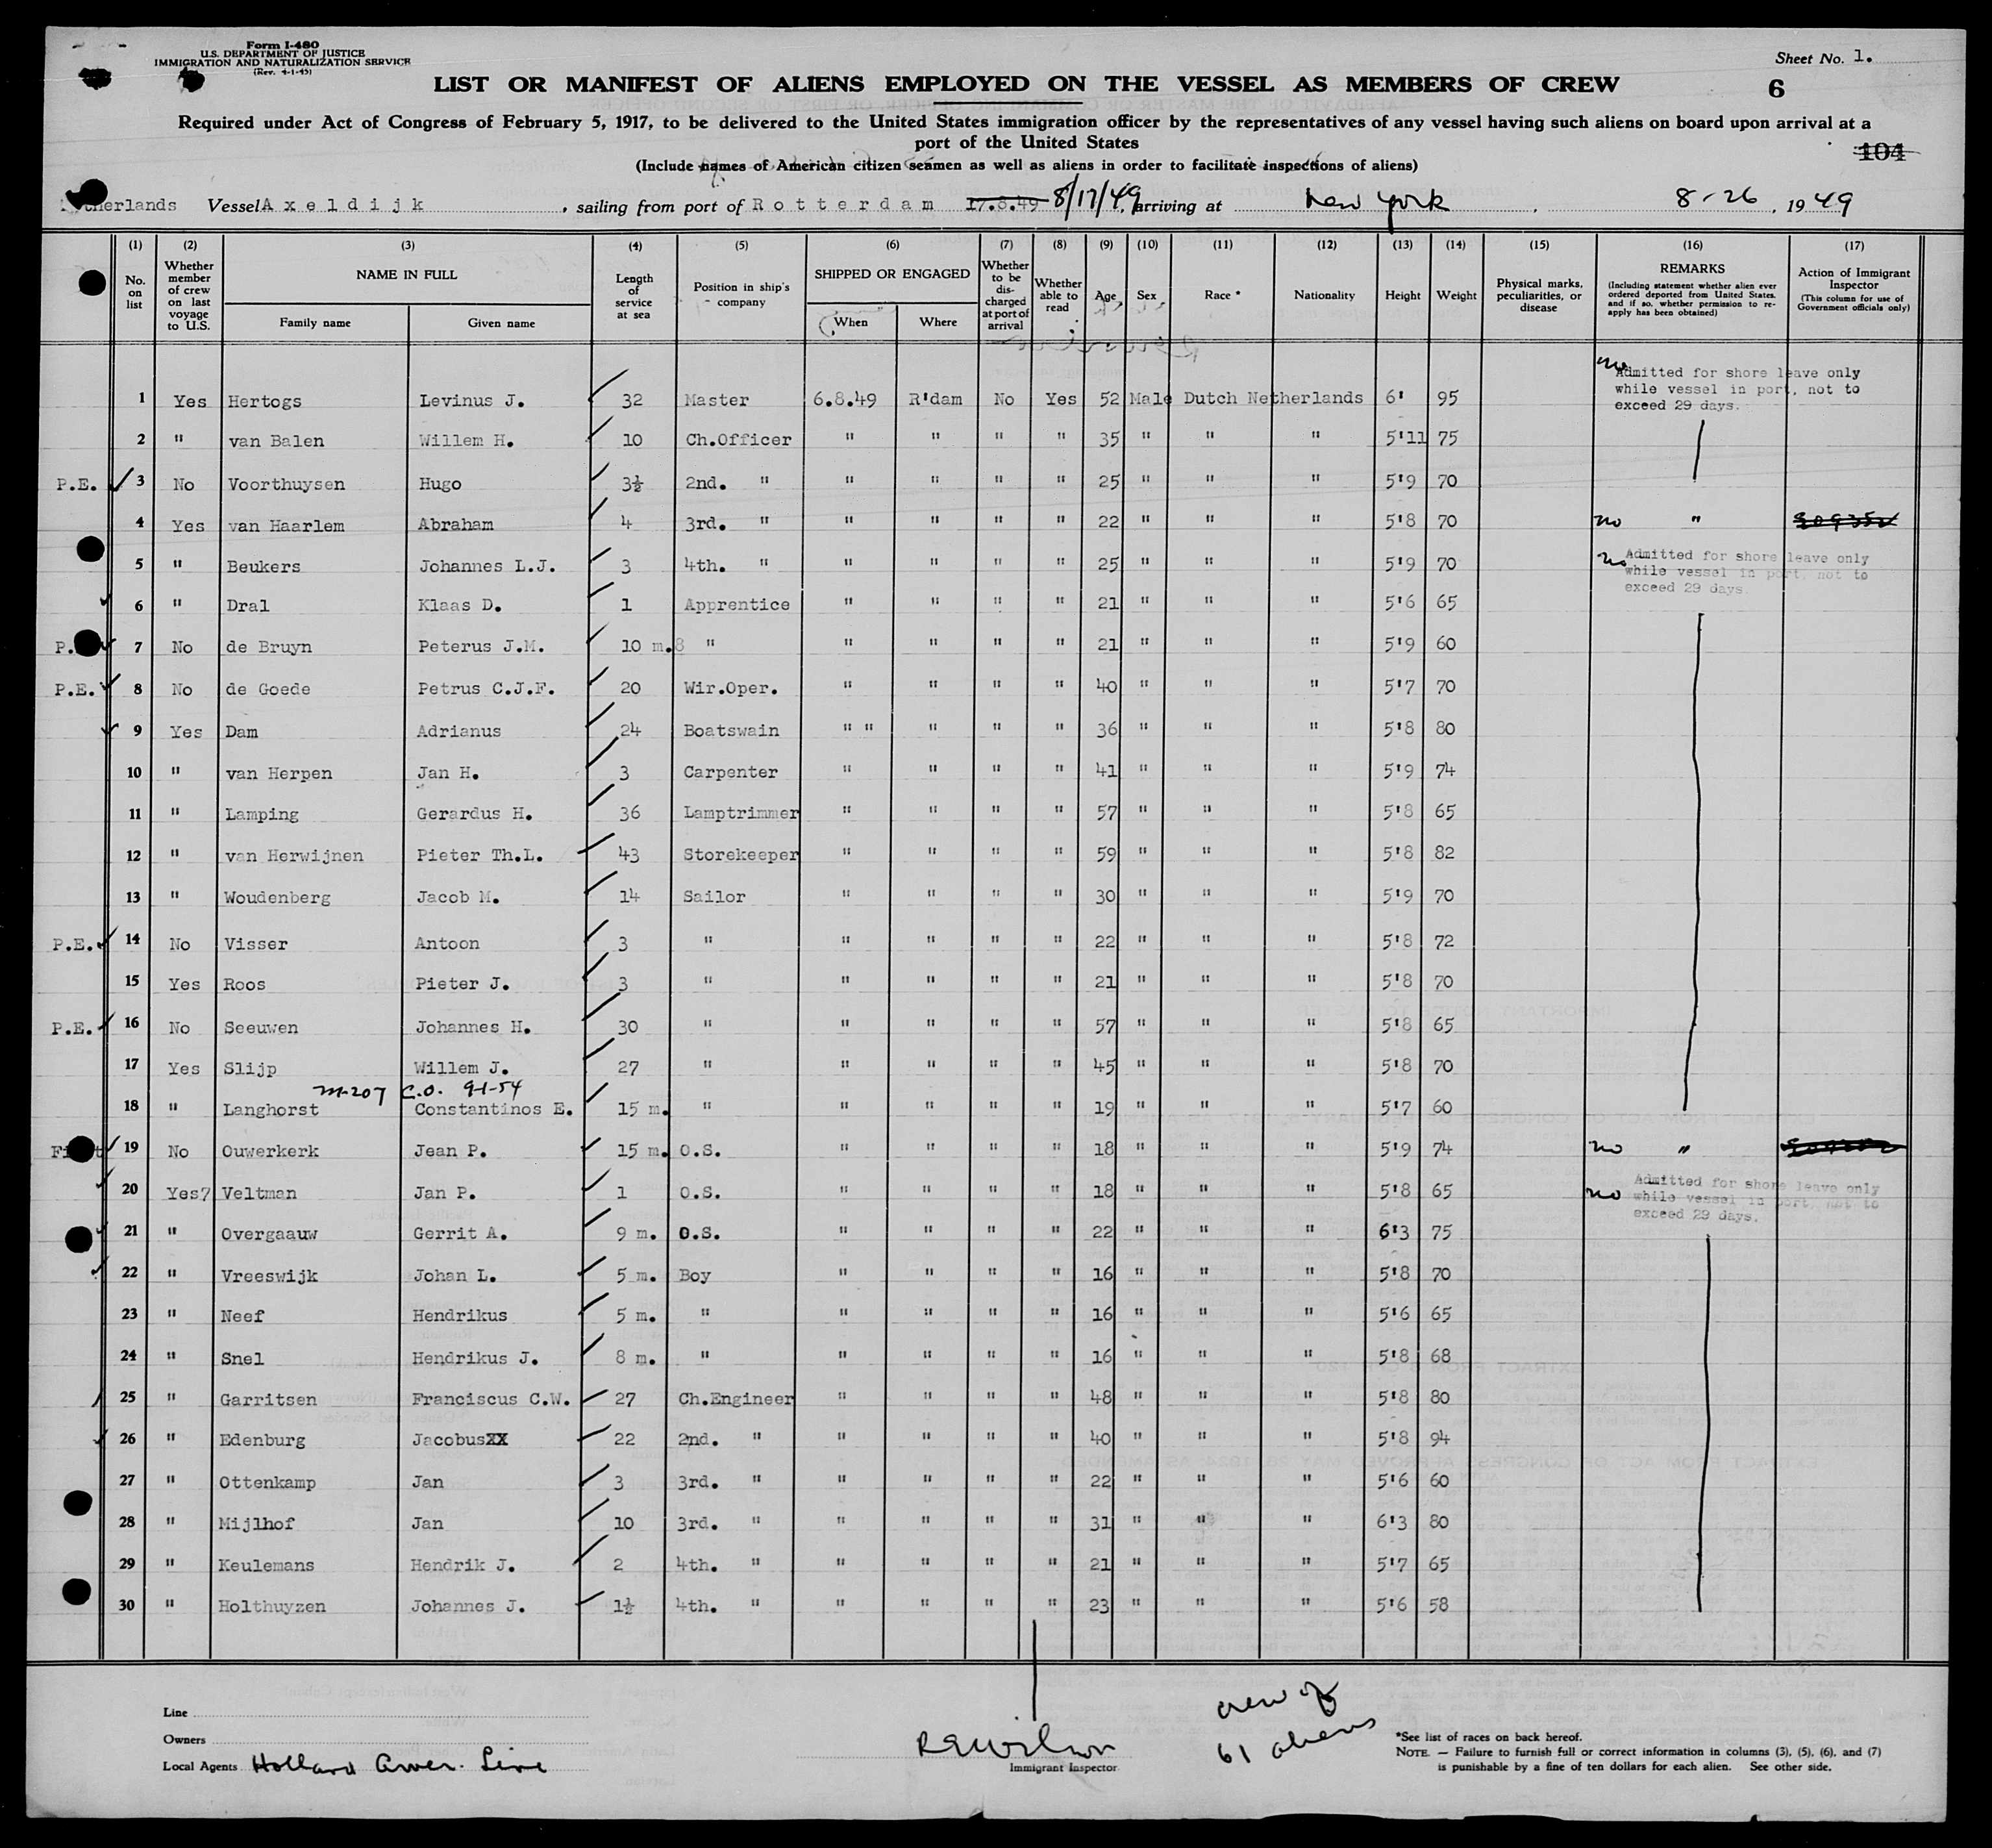 Form I-480
U.S. DEPARTMENT OF JUSTICE
IMMIGRATION AND NATURALIZATION SERVICE
(Rev. 4-1-45)
Sheet No. 1.
LIST OR MANIFEST OF ALIENS EMPLOYED ON THE VESSEL AS MEMBERS OF CREW
6
Required under Act of Congress of February 5, 1917, to be delivered to the United States immigration officer by the representatives of any vessel having such aliens on board upon arrival at a
port of the United States
104
(Include names of American citizen seamen as well as aliens in order to facilitate inspections of aliens)
Vessel Axeldijk, sailing from port of Rotterdam 17.8.49 8/17/49, arriving at New York, 8-26, 1949
(1) (2) (3) (4) (5) (6) (7) (8) (9) (10) (11) (12) (13) (14) (15) (16) (17)
No. on list
Whether member of crew on last voyage to U.S.
NAME IN FULL
Family name Given name
Length of service at sea
Position in ship's company
SHIPPED OR ENGAGED
When Where
Whether to be discharged at port of arrival
Whether able to read
Age Sex Race * Nationality Height Weight
Physical marks, peculiarities, or disease
REMARKS
(Including statement whether alien ever ordered deported from United States, and if so, whether permission to reapply has been obtained)
Action of Immigrant Inspector
(This column for use of Government officials only)
no Admitted for shore leave only
while vessel in port, not to
exceed 29 days.
1 Yes Hertogs Levinus J. 32 Master 6.8.49 R'dam No Yes 52 Male Dutch Netherlands 6' 95
2 " van Balen Willem H. 10 Ch.Officer " " " " 35 " " " 5'11 75
P.E. 3 No Voorthuysen Hugo 3½ 2nd. " " " " " 25 " " " 5'9 70
4 Yes van Haarlem Abraham 4 3rd. " " " " " 22 " " " 5'8 70 no "
5 " Beukers Johannes L.J. 3 4th. " " " " " 25 " " " 5'9 70 no Admitted for shore leave only
while vessel in port, not to
exceed 29 days.
6 " Dral Klaas D. 1 Apprentice " " " " 21 " " " 5'6 65
P. 7 No de Bruyn Peterus J.M. 10 m.8 " " " " " 21 " " " 5'9 60
P.E. 8 No de Goede Petrus C.J.F. 20 Wir.Oper. " " " " 40 " " " 5'7 70
9 Yes Dam Adrianus 24 Boatswain " " " " " 36 " " " 5'8 80
10 " van Herpen Jan H. 3 Carpenter " " " " 41 " " " 5'9 74
11 " Lamping Gerardus H. 36 Lamptrimmer " " " " 57 " " " 5'8 65
12 " van Herwijnen Pieter Th.L. 43 Storekeeper " " " " 59 " " " 5'8 82
13 " Woudenberg Jacob M. 14 Sailor " " " " 30 " " " 5'9 70
P.E. 14 No Visser Antoon 3 " " " " " 22 " " " 5'8 72
15 Yes Roos Pieter J. 3 " " " " " 21 " " " 5'8 70
P.E. 16 No Seeuwen Johannes H. 30 " " " " " 57 " " " 5'8 65
17 Yes Slijp Willem J. 27 " " " " " 45 " " " 5'8 70
M-207 C.O. 9-1-54
18 " Langhorst Constantinos E. 15 m. " " " " " 19 " " " 5'7 60
19 No Ouwerkerk Jean P. 15 m. O.S. " " " " 18 " " " 5'9 74 no "
20 Yes? Veltman Jan P. 1 O.S. " " " " 18 " " " 5'8 65 no Admitted for shore leave only
while vessel in port, not to
exceed 29 days.
21 " Overgaauw Gerrit A. 9 m. O.S. " " " " 22 " " " 6'3 75
22 " Vreeswijk Johan L. 5 m. Boy " " " " 16 " " " 5'8 70
23 " Neef Hendrikus 5 m. " " " " " 16 " " " 5'6 65
24 " Snel Hendrikus J. 8 m. " " " " " 16 " " " 5'8 68
25 " Garritsen Franciscus C.W. 27 Ch.Engineer " " " " 48 " " " 5'8 80
26 " Edenburg JacobusXX 22 2nd. " " " " " 40 " " " 5'8 94
27 " Ottenkamp Jan 3 3rd. " " " " " 22 " " " 5'6 60
28 " Mijlhof Jan 10 3rd. " " " " " 31 " " " 6'3 80
29 " Keulemans Hendrik J. 2 4th. " " " " " 21 " " " 5'7 65
30 " Holthuyzen Johannes J. 1½ 4th. " " " " " 23 " " " 5'6 58
Line
Owners
Local Agents Holland Amer. Line
REWilson
Immigrant Inspector
crew of
61 aliens
*See list of races on back hereof.
NOTE. — Failure to furnish full or correct information in columns (3), (5), (6), and (7)
is punishable by a fine of ten dollars for each alien. See other side.